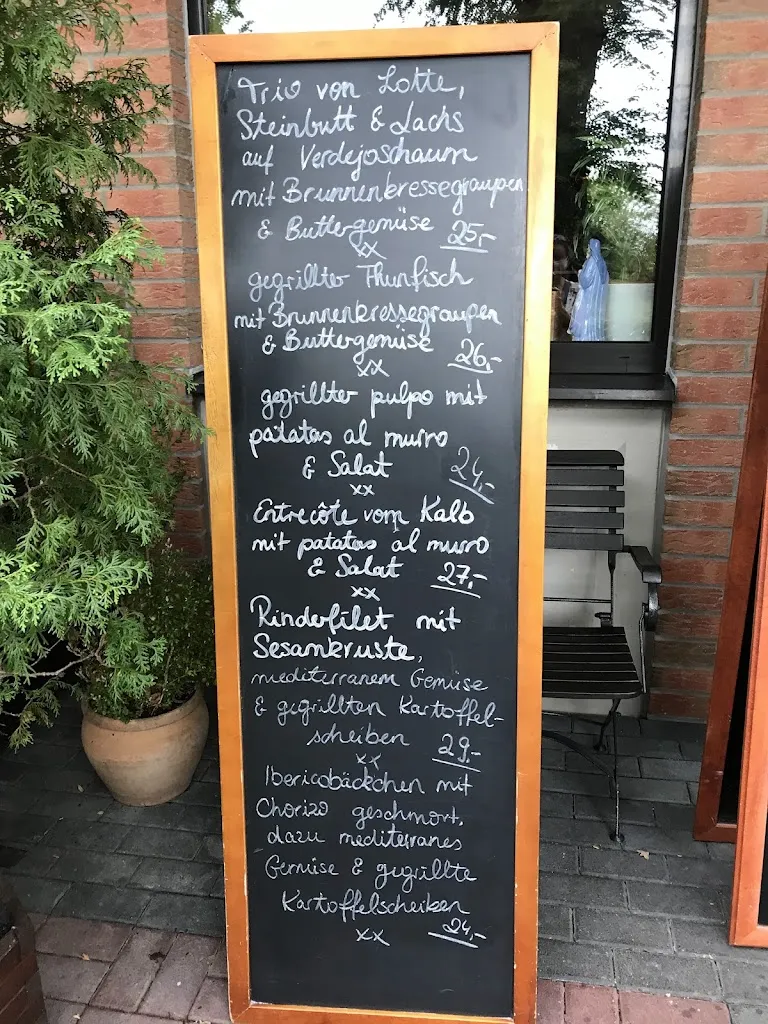 Trio von Lotte,
Steinbutt & Lachs
auf Verdejoschaum
mit Brunnenkressegraupen
& Buttergemüse 25,-
xx
gegrillter Thunfisch
mit Brunnenkressegraupen
& Buttergemüse 26,-
xx
gegrillter pulpo mit
patatas al murro
& Salat 24,-
xx
Entrecôte vom Kalb
mit patatas al murro
& Salat 27,-
xx
Rinderfilet mit
Sesamkruste,
mediterranem Gemüse
& gegrillten Kartoffel-
scheiben 29,-
xx
Ibericobäckchen mit
Chorizo geschmort,
dazu mediterranes
Gemüse & gegrillte
Kartoffelscheiben
24,-
xx